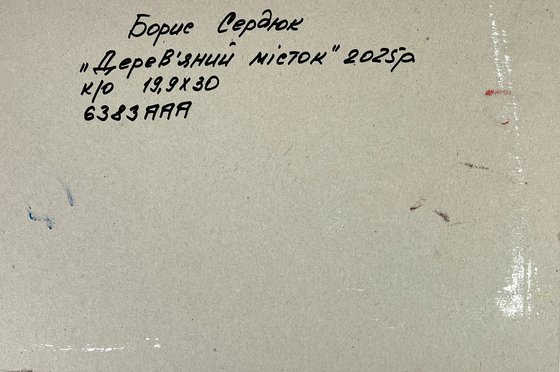 Борис Сердюк
„Дерев'яний місток" 2025р
к/о 19,9х30
6383ААА